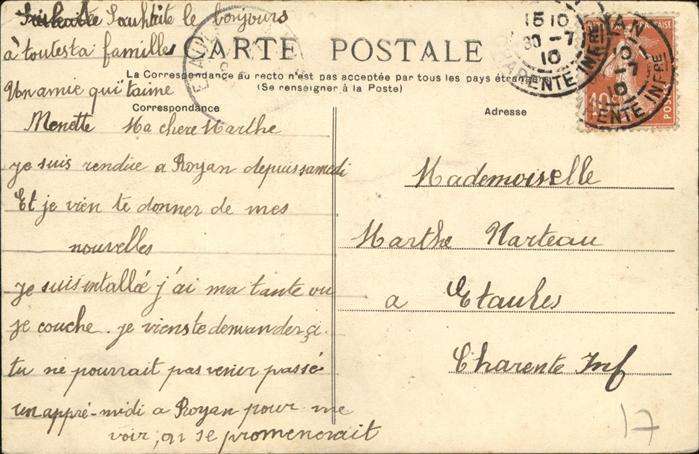 Souhaite le bonjours
à toutesta familles
Un amie qui t'aime
Menette
CARTE POSTALE
La Correspondance au recto n'est pas acceptée par tous les pays étrangers
(Se renseigner à la Poste)
Correspondance
Ma chere Marthe
je suis rendue a Royan depuis samedi
Et je vien te donner de mes
nouvelles
je suis intallée j'ai ma tante ou
je couche. je viens te demander si
tu ne pourrait pas venir passé
un appré-midi a Royan pour me
voir, on se promenerait
Adresse
Mademoiselle
Marthe Marteau
a Etaules
Charente Inf
17
15 10
30 -7
10
CHARENTE INFRE
ROYAN
10
POSTES